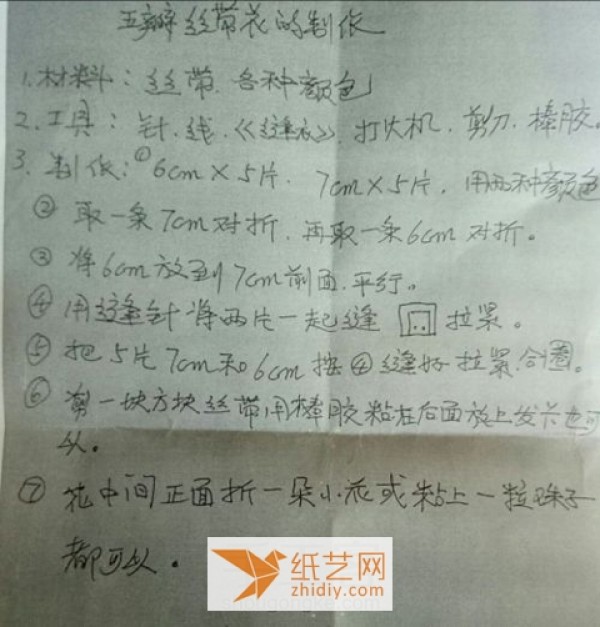 五瓣丝带花的制作
1.材料：丝带.各种颜色
2.工具：针.线.《缝衣》.打火机.剪刀.棒胶。
3.制作：①6cm×5片.7cm×5片，用两种颜色
② 取一条7cm对折.再取一条6cm对折。
③ 将6cm放到7cm前面.平行。
④ 用缝针将两片一起缝 拉紧。
⑤ 把5片7cm和6cm按④缝好拉紧.合圈。
⑥ 剪一块方块丝带用棒胶粘在后面放上发卡也可
以。
⑦ 花中间正面折一朵小花或粘上一粒珠子
都可以。
纸艺网
zhidiy.com